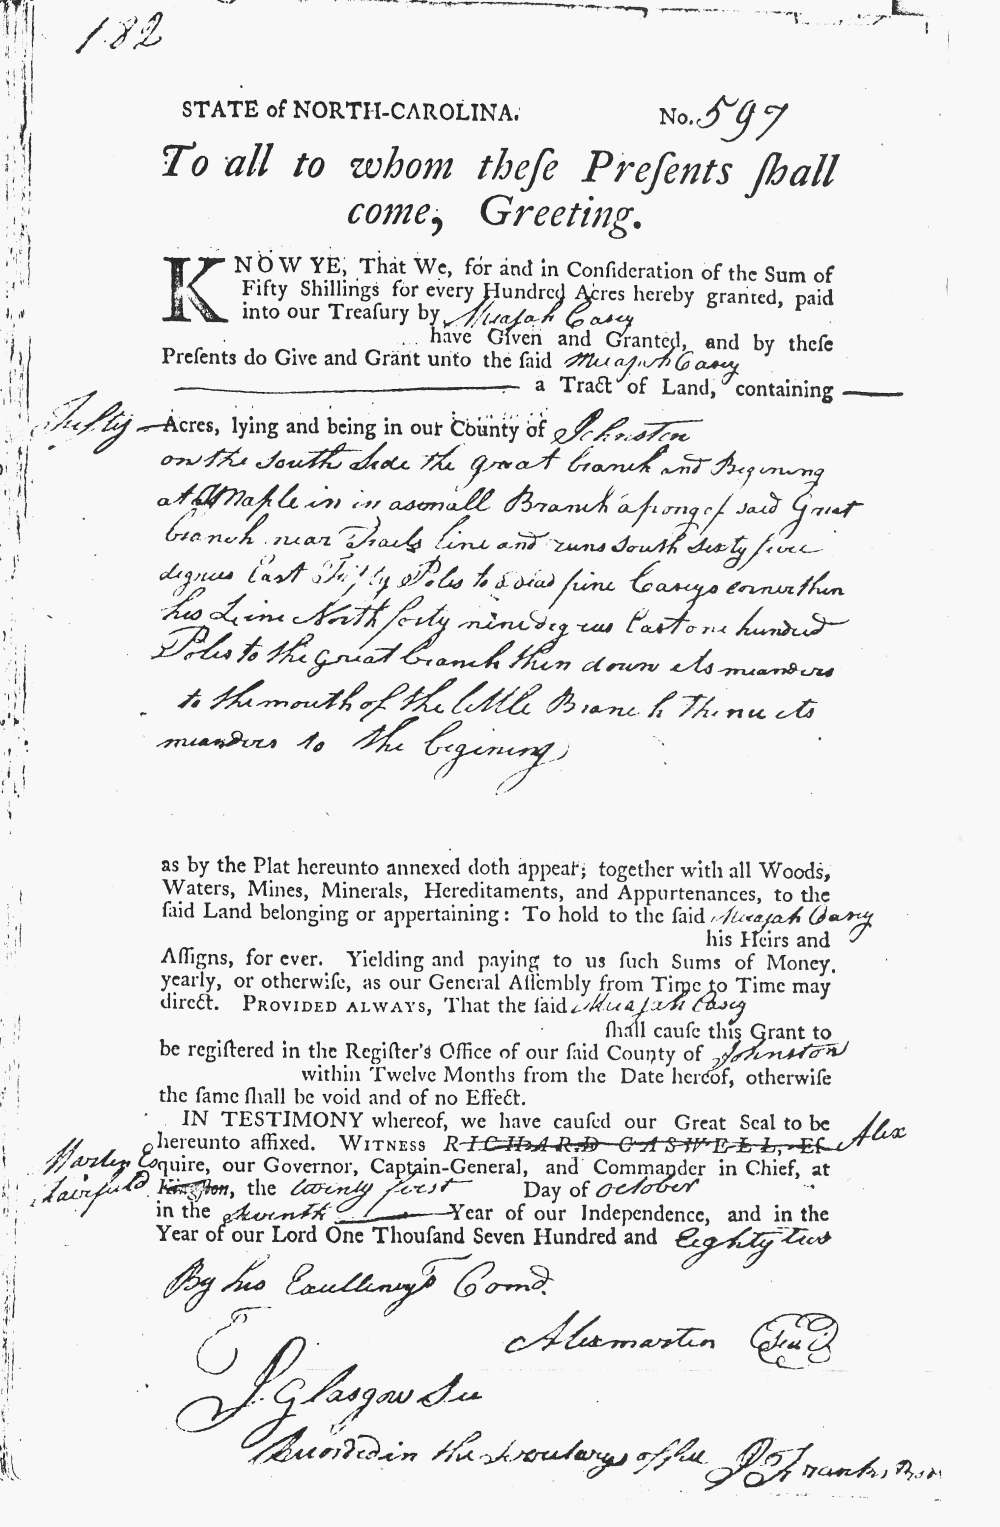 182
STATE of NORTH-CAROLINA. No. 597
To all to whom theſe Preſents ſhall
come, Greeting.
KNOW YE, That We, for and in Conſideration of the Sum of
Fifty Shillings for every Hundred Acres hereby granted, paid
into our Treaſury by Micajah Casey
have Given and Granted, and by theſe
Preſents do Give and Grant unto the ſaid Micajah Casey
a Tract of Land, containing
Fifty Acres, lying and being in our County of Johnston
on the South Side the great branch and Begining
at a Maple in in a small Branch a prong of said Great
branch near Line and runs South Sixty five
degrees East Fifty Poles to a dead pine Caseys corner then
his Line North forty nine degrees East one hundred
Poles to the great branch then down its meanders
to the mouth of the little Branch Thence its
meanders to the begining
as by the Plat hereunto annexed doth appear; together with all Woods,
Waters, Mines, Minerals, Hereditaments, and Appurtenances, to the
ſaid Land belonging or appertaining: To hold to the ſaid Micajah Casey
his Heirs and
Aſſigns, for ever. Yielding and paying to us ſuch Sums of Money,
yearly, or otherwiſe, as our General Aſſembly from Time to Time may
direct. PROVIDED ALWAYS, That the ſaid Micajah Casey
ſhall cauſe this Grant to
be regiſtered in the Regiſter's Office of our ſaid County of Johnston
within Twelve Months from the Date hereof, otherwiſe
the ſame ſhall be void and of no Effect.
IN TESTIMONY whereof, we have cauſed our Great Seal to be
hereunto affixed. WITNESS RICHARD CASWELL, Eſ- Alex
Martin Esquire, our Governor, Captain-General, and Commander in Chief, at
Fairfield Kingſton, the twenty first Day of october
in the Seventh Year of our Independence, and in the
Year of our Lord One Thouſand Seven Hundred and Eighty two
By his Excellency's Comd.
Alex martin Seal
J. Glasgow Sec
Recorded in the secretarys office J Franks